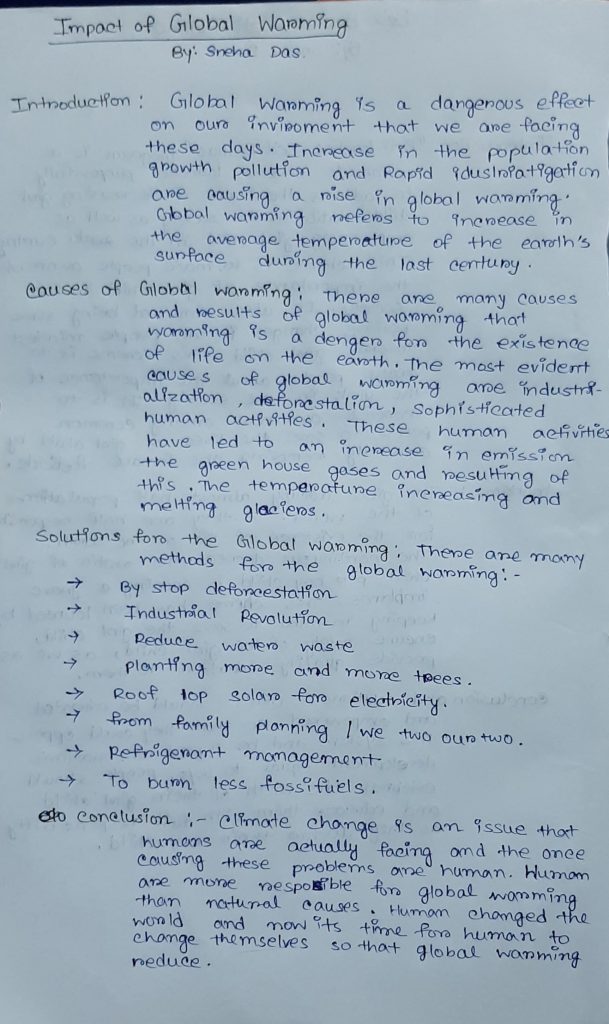 Impact of Global Warming
By: Sneha Das.
Introduction: Global Warming is a dangerous effect
on our invinoment that we are facing
these days. Increase in the population
growth pollution and Rapid idustriatigation
are causing a rise in global warming.
Global warming refers to increase in
the average temperature of the earth's
surface during the last century.
Causes of Global warming: There are many causes
and results of global warming that
warming is a denger for the existence
of life on the earth. The most evident
causes of global warming are industri-
alization, deforestation, sophisticated
human activities. These human activities
have led to an increase in emission
the green house gases and resulting of
this. The temperature increasing and
melting glaciers.
Solutions for the Global warming: There are many
methods for the global warming:-
→ By stop deforestation
→ Industrial Revolution
→ Reduce water waste
→ planting more and more trees.
→ Roof top solar for electricity.
→ from family planning / we two our two.
→ Refrigerant management
→ To burn less fossifuels.
Conclusion :- Climate change is an issue that
humans are actually facing and the once
causing these problems are human. Human
are more resposible for global warming
than natural causes. Human changed the
world and now its time for human to
change themselves so that global warming
reduce.